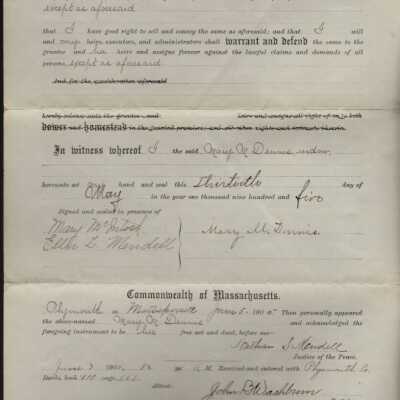 except as aforesaid
that I have good right to sell and convey the same as aforesaid; and that I will
and my heirs, executors, and administrators shall warrant and defend the same to the
grantee and his heirs and assigns forever against the lawful claims and demands of all
persons except as aforesaid.
And for the consideration aforesaid
hereby release unto the grantee and heirs and assigns all right of or to both
dower and homestead in the granted premises, and all other rights and interests therein.
In witness whereof I the said Mary M. Dennis widow
hereunto set my hand and seal this thirtieth day of
May in the year one thousand nine hundred and five
Signed and sealed in presence of
Mary McIntosh
Ellen L. Mendell
Mary M. Dennis
Commonwealth of Massachusetts.
Plymouth ss June 5 1905. Then personally appeared
the above-named Mary M. Dennis and acknowledged the
foregoing instrument to be her free act and deed, before me—
Nathan S. Mendell
Justice of the Peace.
A. M. Received and entered with Plymouth Co.
Deeds, book
Attest:
John B. Washburn